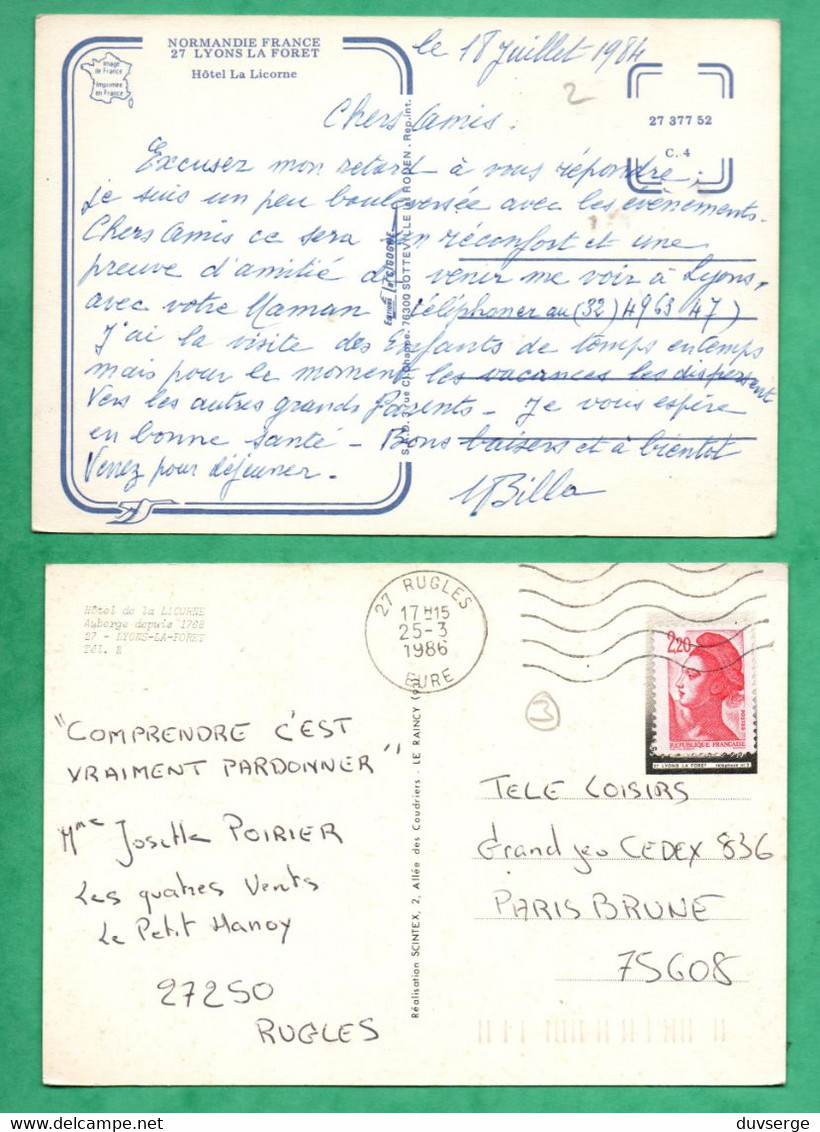 NORMANDIE FRANCE
27 LYONS LA FORET
Hôtel La Licorne
Image
de France
Imprimée
en France
le 18 Juillet 1984
2
27 377 52
C. 4
Chers Amis.
Excusez mon retard à vous répondre,
je suis un peu bouleversée avec les évènements.
Chers Amis ce sera un réconfort et une
preuve d'amitié de venir me voir à Lyons,
avec votre Maman (téléphoner au (32) 49 63 47)
J'ai la visite des Enfants de temps en temps
mais pour le moment les vacances les dispersent
Vers les autres grands Parents - Je vous espère
en bonne santé - Bons baisers et à bientôt
Venez pour déjeuner -
MBilla
76300 SOTTEVILLE les ROUEN - Rep. int.
Hôtel de la LICORNE
Auberge depuis 1768
27 - LYONS-LA-FORET
Tél. 2
27 RUGLES
17H15
25-3
1986
EURE
2,20
POSTES
REPUBLIQUE FRANÇAISE
27 LYONS LA FORET téléphone n° 2
3
"COMPRENDRE C'EST
VRAIMENT PARDONNER"
Mme Josette POIRIER
Les quatres Vents
Le Petit Manoy
27250
RUGLES
Réalisation SCINTEX, 2, Allée des Coudriers - LE RAINCY
TELE LOISIRS
Grand jeu CEDEX 836
PARIS BRUNE
75608
duvserge